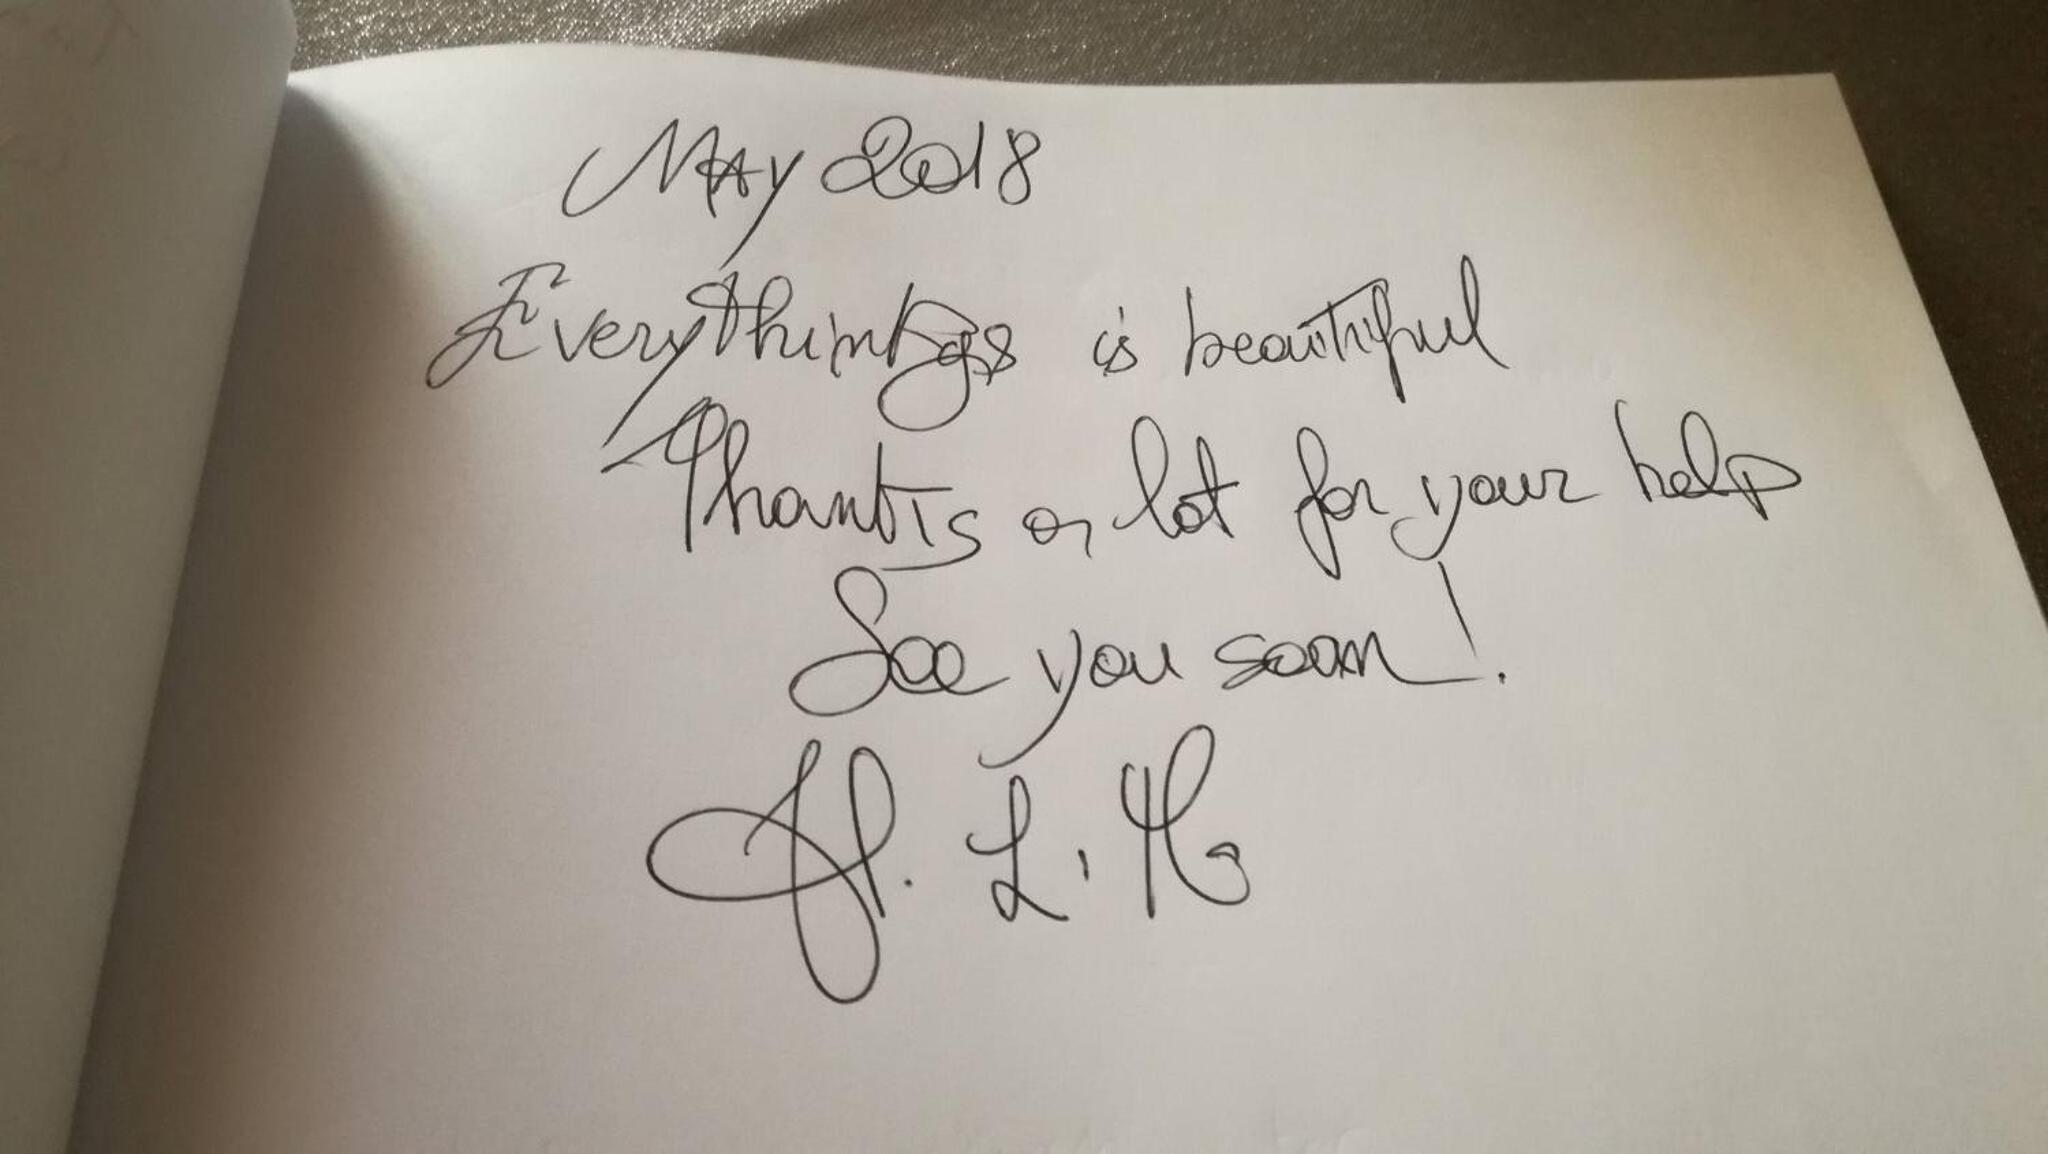 MAY 2018
Everythings is beautiful
Thanks a lot for your help
See you soon!